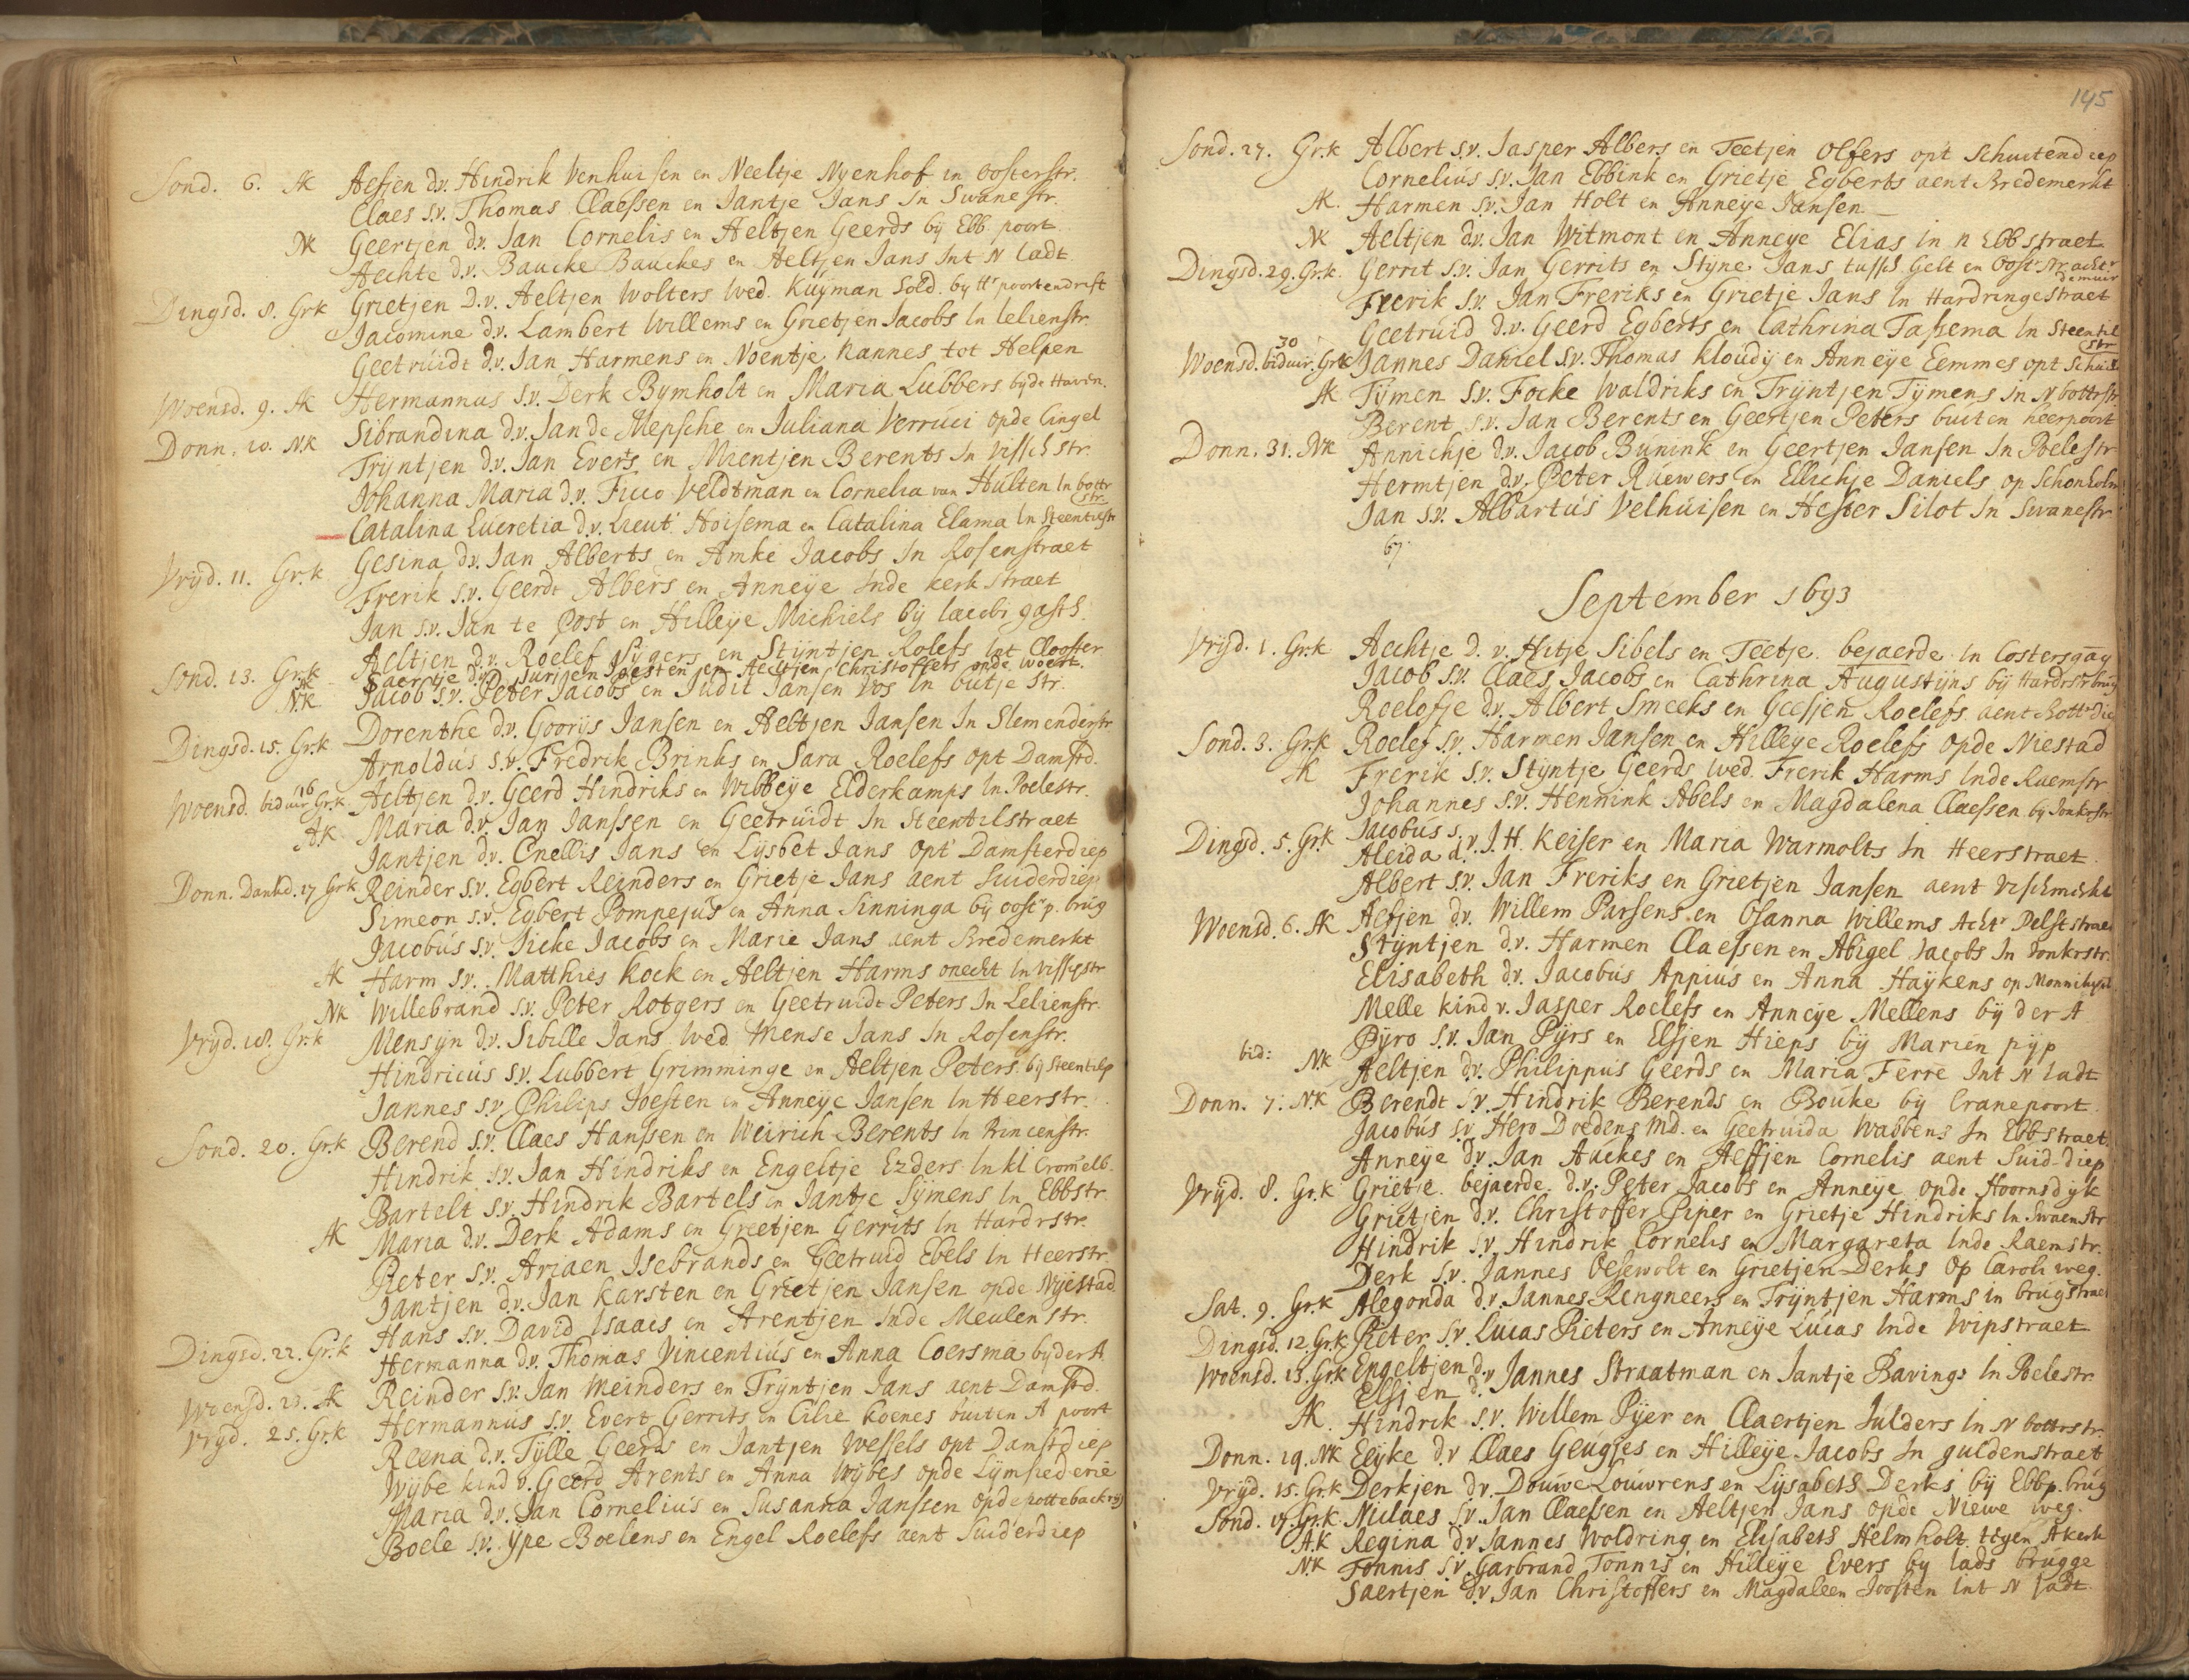 Sond. 6. AK Aefjen d.v. Hindrik Venhuisen en Neeltje Nyenhof in oosterstr.
Claes s.v. Thomas Claessen en Jantje Jans In Swanestr.
NK Geertjen d.v. Jan Cornelis en Aeltjen Geerds by Ebb. poort
Aechte d.v. Baucke Bauckes en Aeltjen Jans Int N ladt
Dingsd. 8. Grk Grietjen D.v. Aeltjen Wolters Wed. Kuyman Sold. by Hr poortendrift
Jacomine d.v. Lambert Willems en Grietjen Jacobs In lelienstr.
Geetruidt d.v. Jan Harmens en Noentje Hannes tot Helpen
Woensd. 9. AK Hermannus s.v. Derk Bymholt en Maria Lubbers by de Haven.
Donn. 10. N.K Sibrandina d.v. Jan de Mepsche en Juliana Verruci op de Cingel
Tryntjen d.v. Jan Everts en Mientjen Berents In Vissch str.
Johanna Maria d.v. Ficco Veldtman en Cornelia van Hulten In bottr str.
Catalina Lucretia d.v. Lieut. Hoisema en Catalina Elama In Steentilstr
Vryd. 11. Gr.k Gesina d.v. Jan Alberts en Amke Jacobs In Rosenstraet
Frerik s.v. Geerdt Albers en Anneye Inde Kerkstraet
Jan s.v. Jan te Post en Hilleye Michiels by Jacobi gasth.
Aeltjen d.v. Roelef Sygers en Styntjen Rolefs Int Clooster
Sond. 13. Gr.k Saertje d.v. Jurjen Joesten en Aeltjen Christoffers opde Woert.
N.K Jacob s.v. Peter Jacobs en Judit Jansen Vos In butje str.
Dingsd. 15. Gr.k Dorenthe d.v. Goorys Jansen en Aeltjen Jansen In Slemenderstr
Arnoldus s.v. Fredrik Brinks en Sara Roelefs opt Damstd.
Woensd. biduir 16 Gr.k. Aeltjen d.v. Geerd Hindriks en Wibbeye Elderkamps In Poelestr.
A.K Maria d.v. Jan Janssen en Geetruidt In Steentilstraet
Jantjen d.v. Cnellis Jans en Lysbet Jans opt Damsterdiep
Donn. Dankd. 17 Grk Reinder s.v. Egbert Reinders en Grietje Jans aent Suiderdiep
Simeon s.v. Egbert Pompejus en Anna Sinninga by oostr p. brug
Jacobus s.v. Jieke Jacobs en Marie Jans aent Bredemerkt
AK Harm s.v. Matthies Kock en Aeltjen Harms onecht In Visschstr
NK Willebrand s.v. Peter Rotgers en Geetruidt Peters In Lelienstr.
Vryd. 18. Gr.k Mensyn d.v. Sibille Jans Wed. Mense Jans In Rosenstr.
Hindricus s.v. Lubbert Grimminge en Aeltjen Peters by Steentilp
Jannes s.v. Philips Joesten en Anneye Jansen In Heerstr.
Sond. 20. Gr.k Berend s.v. Claes Hanssen en Weirich Berents In Princenstr.
Hindrik s.v. Jan Hindriks en Engeltje Ezders In Kl Cromelb.
Bartelt s.v. Hindrik Bartels en Jantje Symens In Ebbstr.
AK Maria d.v. Derk Adams en Greetjen Gerrits In Hardrstr.
Pieter s.v. Ariaen Isebrands en Geetruid Ebels In Heerstr.
Jantjen d.v. Jan Karsten en Grietjen Jansen opde Nyestad
Hans s.v. David Isaacs en Arentjen Inde Meulenstr.
Dingsd. 22. Gr.k Hermanna d.v. Thomas Vincentius en Anna Coersma by der A
Woensd. 23. AK Reinder s.v. Jan Meinders en Tryntjen Jans aent Damstd.
Vryd. 25. Gr.k Hermannus s.v. Evert Gerrits en Cilie Koenes buiten A poort
Reena d.v. Tylle Geerds en Jantjen Wessels opt Damstdiep
Wybe kind v. Geerd Arents en Anna Wybes opde Lymsiederie
Maria d.v. Jan Cornelius en Susanna Janssen opde pottebackry
Boele s.v. Ype Boelens en Engel Roelefs aent Suiderdiep
145
Sond. 27. Gr.k Albert s.v. Jasper Albers en Teetjen Olfers opt Schuitendiep
Cornelius s.v. Jan Ebbink en Grietje Egberts aent Bredemerkt
AK. Harmen s.v. Jan Holt en Anneye Jansen
NK Aeltjen d.v. Jan Witmont en Anneye Elias in N Ebbstraet
Dingsd. 29. Gr.k. Gerrit s.v. Jan Gerrits en Styne Jans tussch Gelt en Oostr str achtr demuir
Frerik s.v. Jan Freriks en Grietje Jans In Hardringestraet
Geetruid d.v. Geerd Egberts en Cathrina Tassema In Steentil str
Woensd. 30 biduir. Grk Jannes Daniel s.v. Thomas Kloudy en Anneye Eemmes opt Schuit
AK Tymen s.v. Focke Waldriks en Tryntjen Tymens in N bottrstr
Berent s.v. Jan Berents en Geertjen Peters buiten heerpoort
Donn. 31. NK Annichje d.v. Jacob Bunink en Geertjen Jansen In Poelestr
Hermtjen d.v. Peter Ruewers en Ellichje Daniels op Schonholm
Jan s.v. Albartus Velhuisen en Hester Silot In Swanestr
67.
September 1693
Vryd. 1. Gr.k Aechtje D.v. Hitje Sibels en Teetje bejaerde In Costersgang
Jacob s.v. Claes Jacobs en Cathrina Augustyns by Hardrstr brug
Roelofje d.v. Albert Smeeks en Geesjen Roelefs aent Bottr Die
Sond. 3. Gr.k Roelef s.v. Harmen Jansen en Hilleye Roelefs opde Niestad
AK Frerik s.v. Styntje Geerds wed. Frerik Harms Inde Raemstr
Johannes s.v. Hennink Abels en Magdalena Claessen by Jonkerstr
Dingsd. 5. Gr.k Jacobus s.
Aleida d. v. J. H. Keiser en Maria Warmolts In Heerstraet
Albert s.v. Jan Freriks en Grietjen Jansen aent Vischmerkt
Woensd. 6. AK Aefjen d.v. Willem Parsens en Osanna Willems Achtr Delfstraet
Styntjen d.v. Harmen Claessen en Abigel Jacobs In Jonkrstr.
Elisabeth d.v. Jacobus Appius en Anna Haykens op Monnikeholm
Melle kind v. Jasper Roelefs en Anneye Mellens by der A
Pyro s.v. Jan Pyrs en Elsjen Hieps by Marien pyp
bid: NK Aeltjen d.v. Philippus Geerds en Maria Ferre Int N ladt
Donn. 7. N.K Berendt s.v. Hindrik Berends en Bouke by Cranepoort
Jacobus s.v. Hero Doedens Md. en Geetruida Wabbens In Ebbstraet
Anneye d.v. Jan Auckes en Aeffjen Cornelis aent Suid-diep
Vryd. 8. Gr.k Grietje bejaerde d.v. Peter Jacobs en Anneye opde Hoornsdyk
Grietjen d.v. Christoffer Piper en Grietje Hindriks In Swaenstr
Hindrik s.v. Hindrik Cornelis en Margareta Inde Raemstr.
Derk s.v. Jannes Oesewolt en Grietjen Derks op Caroli weg.
Sat. 9. Gr.k Alegonda d.v. Jannes Rengneers en Tryntjen Harms in brugstraet
Dingsd. 12. Gr.k Pieter s.v. Lucas Pieters en Anneye Lucas Inde Wipstraet
Woensd. 13. Gr.k Engeltjen d.
Elsjen d. v Jannes Straatman en Jantje Bavings In Poelestr.
AK. Hindrik s.v. Willem Pyer en Claertjen Julders In N bottrstr.
Donn. 14. NK Eeyke d.v Claes Geugjes en Hilleye Jacobs In guldenstraet
Vryd. 15. Gr.k Derkjen d.v. Douwe Louwrens en Lysabets Derks by Ebbp. brug
Sond. 17 Gr.k. Niclaes s.v. Jan Claessen en Aeltjen Jans opde Niewe weg.
A.K Regina d.v Jannes Woldring en Elisabets Helmholt tegen Akerk
N.K Tonnis s.v. Garbrand Tonnis en Hilleye Evers by lads brugge
Saertjen d.v. Jan Christoffers en Magdaleen Joosten int N ladt